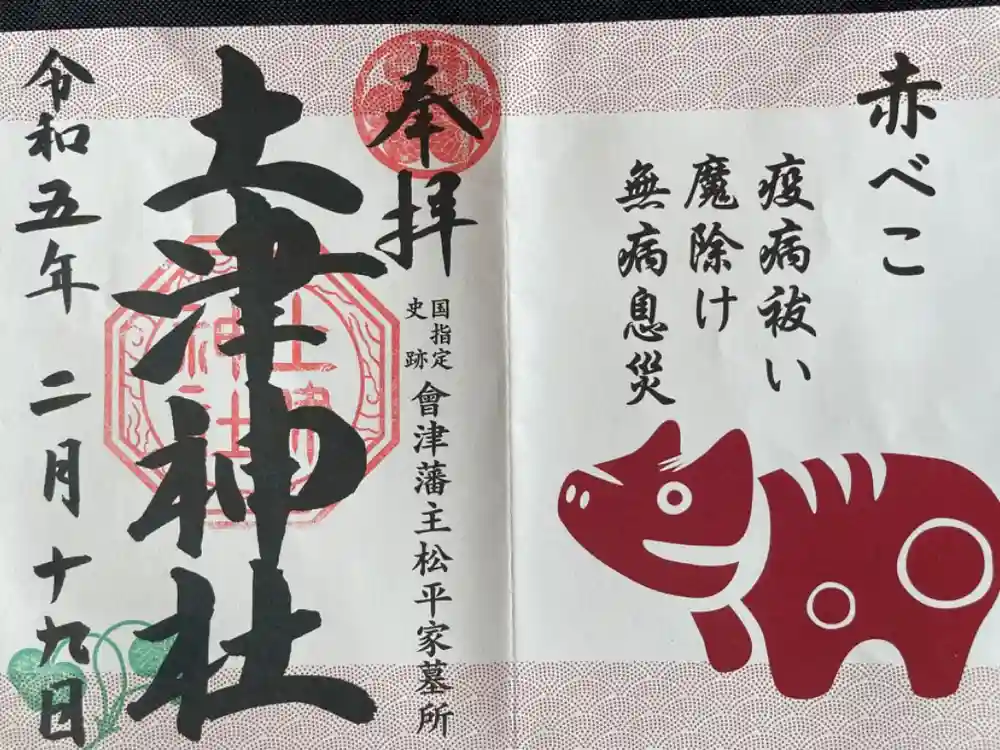 赤べこ
疫病祓い
魔除け
無病息災
奉拝
国指定
史跡
會津藩主松平家墓所
土津神社
土津
神社
令和五年 二月 十九日